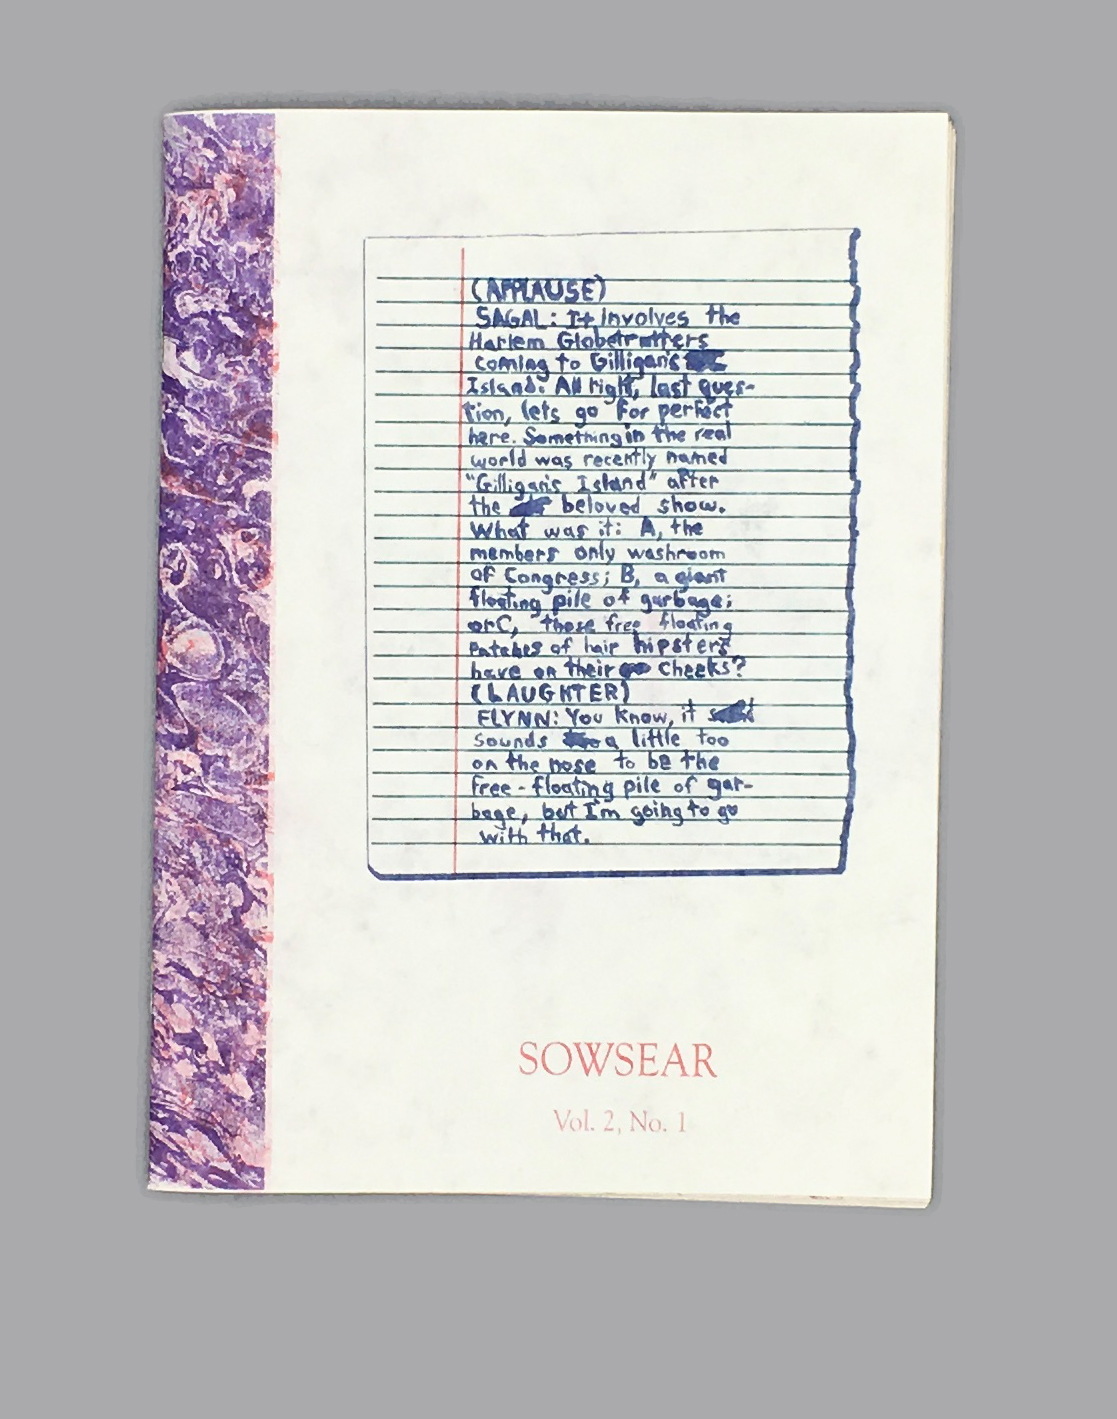 (APPLAUSE)
SAGAL: It involves the
Harlem Globetrotters
coming to Gilligan's
Island. All right, last ques-
tion, lets go for perfect
here. Something in the real
world was recently named
"Gilligan's Island" after
the beloved show.
What was it: A, the
members only washroom
of Congress; B, a giant
floating pile of garbage;
or C, those free floating
patches of hair hipsters
have on their cheeks?
(LAUGHTER)
FLYNN: You know, it
sounds a little too
on the nose to be the
free-floating pile of gar-
bage, but I'm going to go
with that.
SOWSEAR
Vol. 2, No. 1